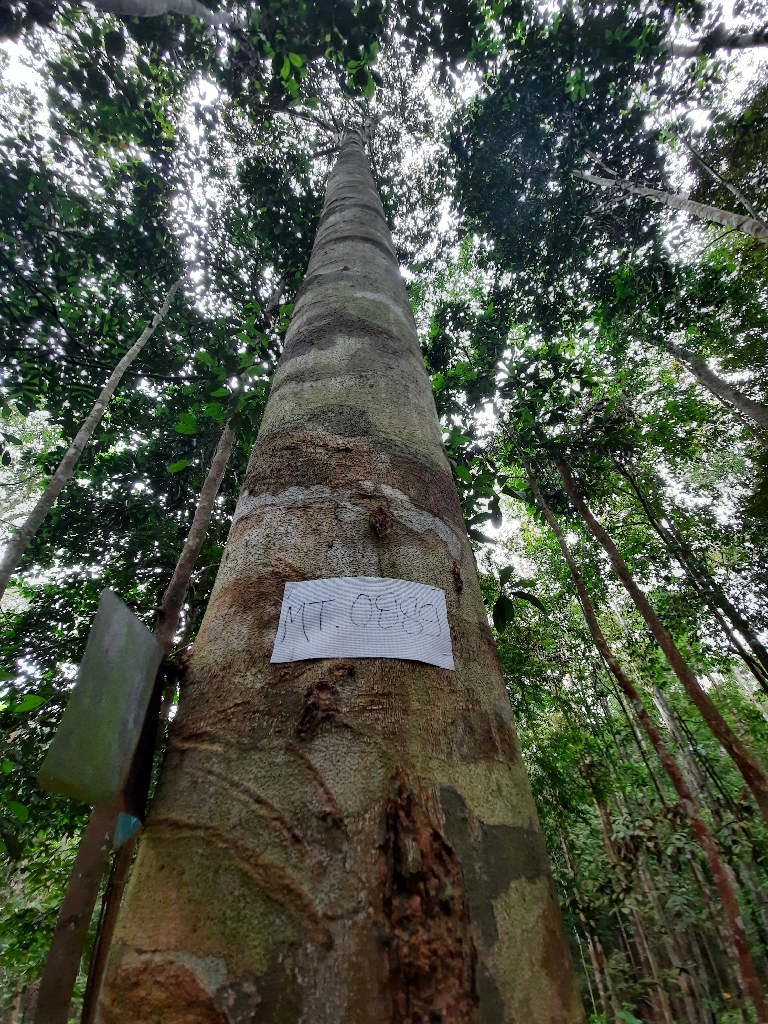 MT. 0889